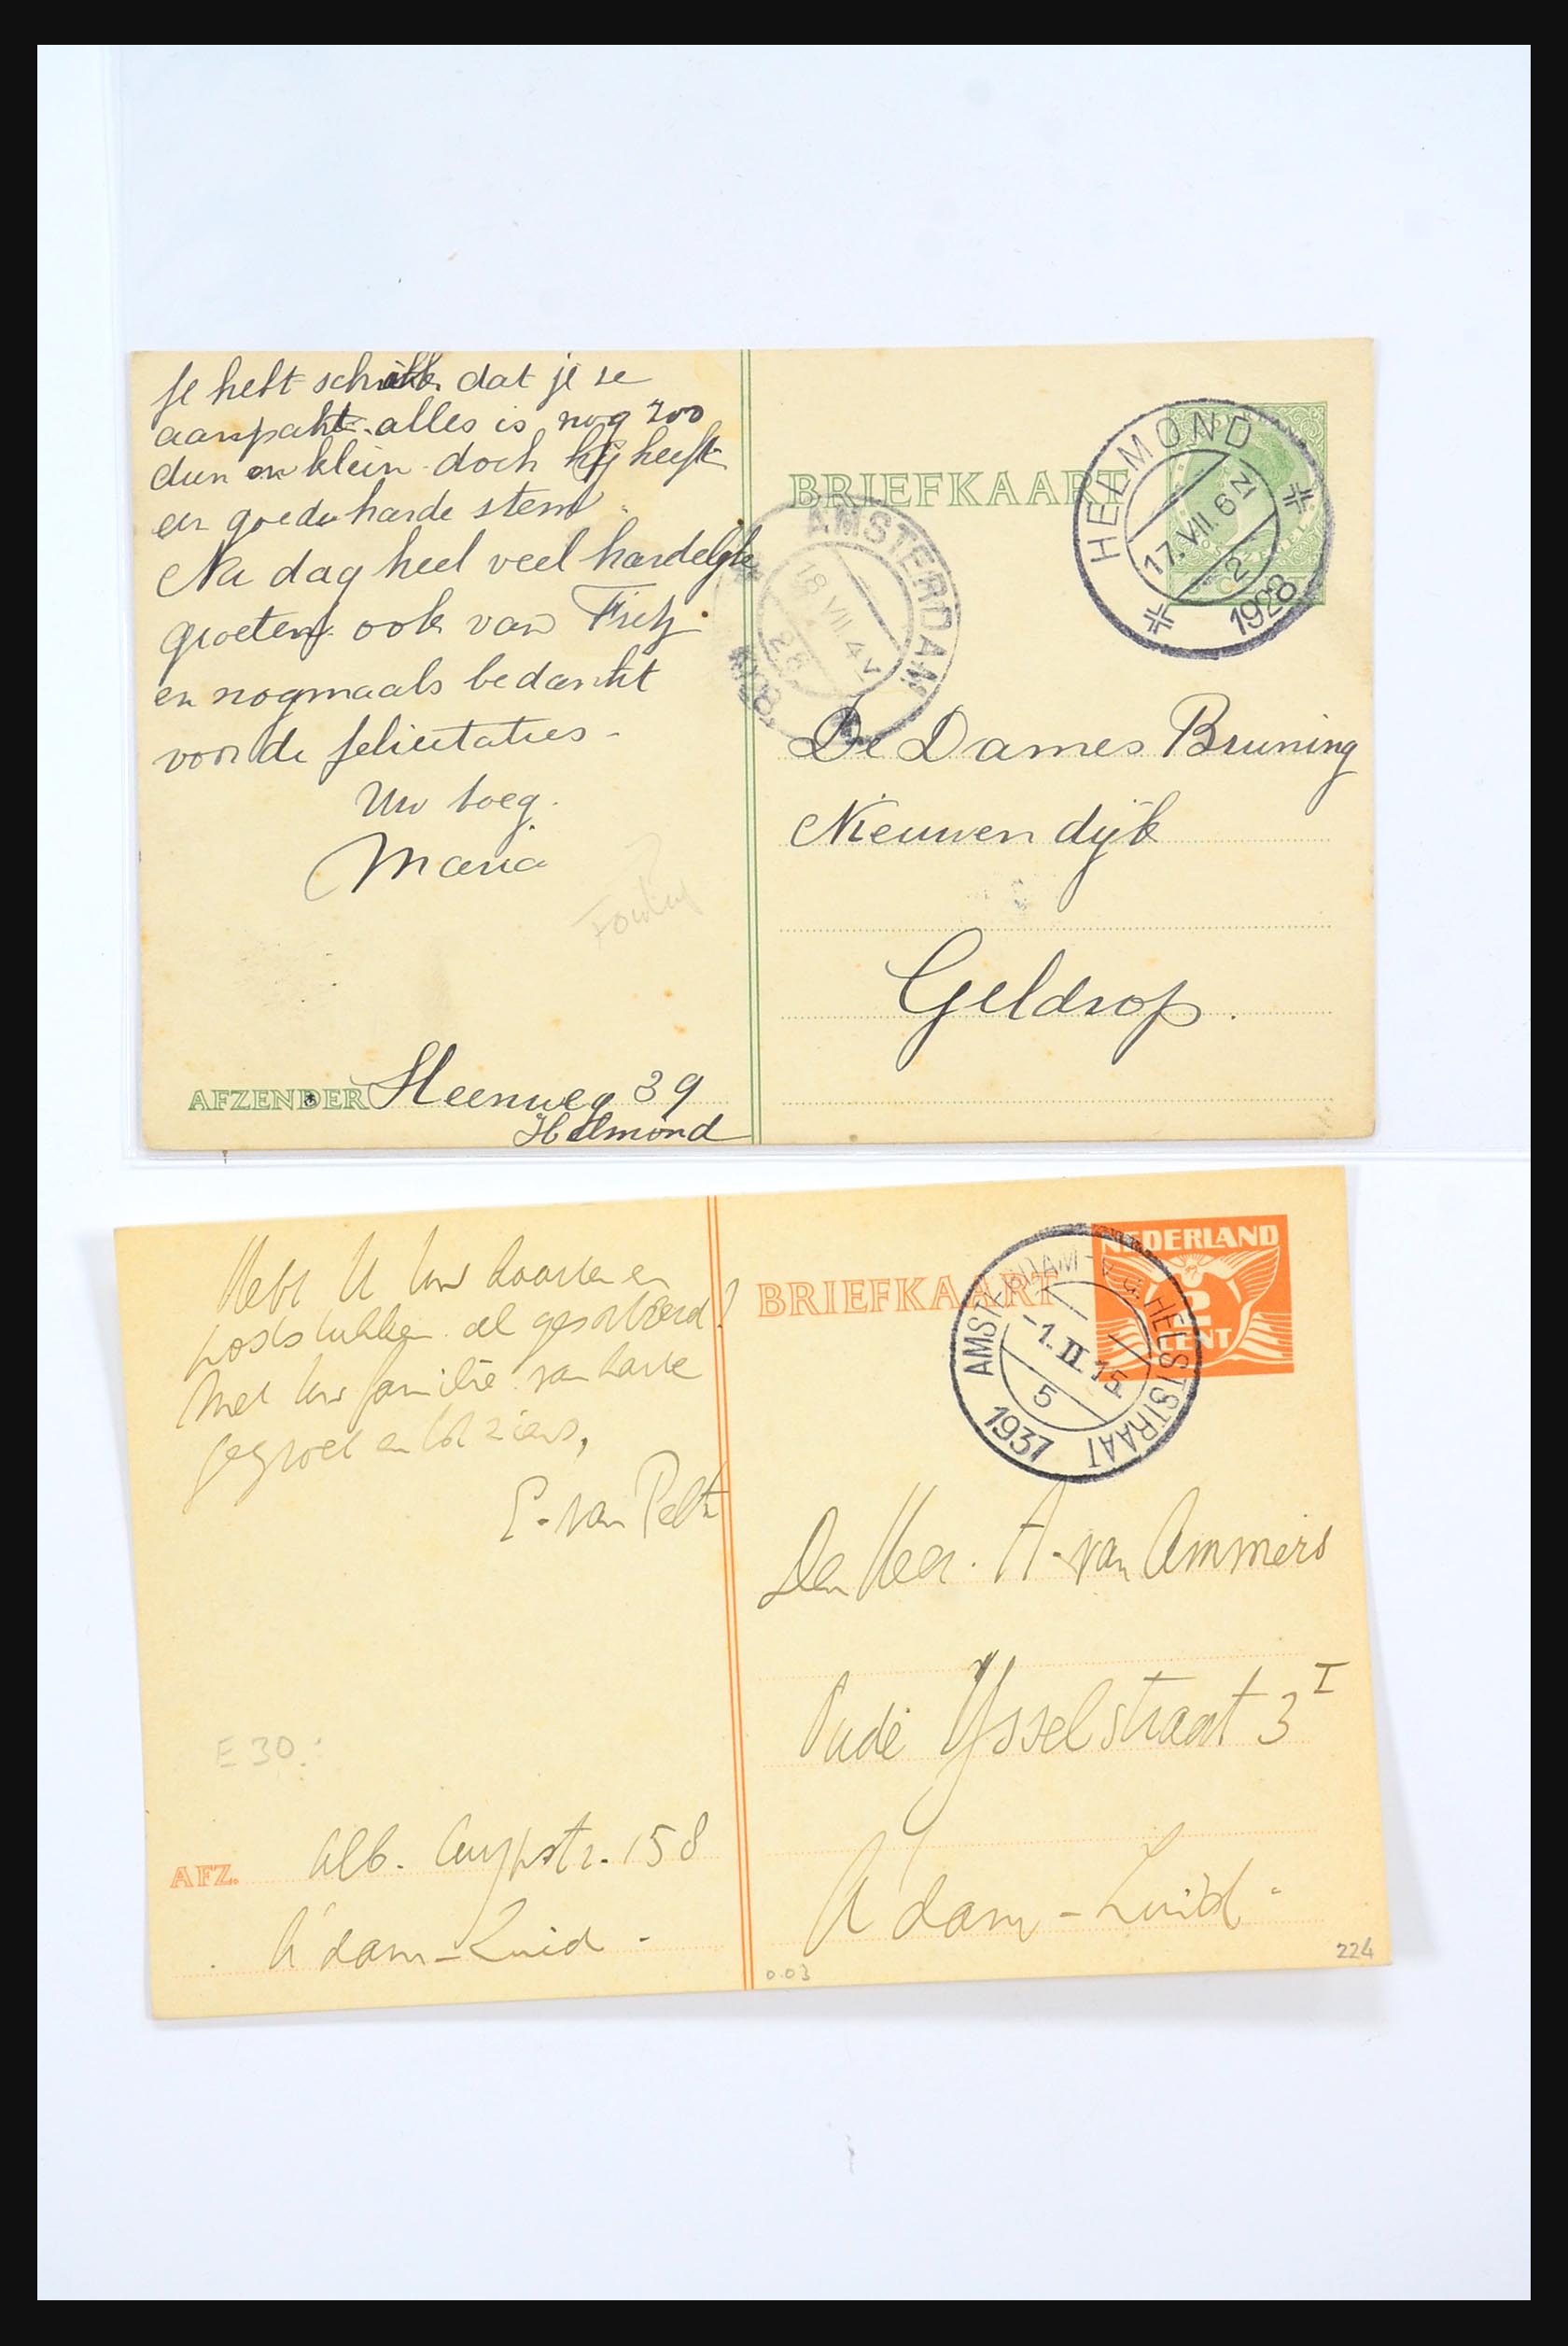 Je hebt schrik dat je ze
aanpakt. alles is nog zoo
dun en klein doch hij heeft
een goede harde stem.
Nu dag heel veel hartelijke
groeten ook van Frits
en nogmaals bedankt
voor de felicitaties -
Uw toeg.
Maria
AFZENDER Steenweg 39
Helmond
BRIEFKAART
HELMOND
17.VII.6N
2
1928
AMSTERDAM
18 VII 4V
28
De Dames Bruning
Nieuwendijk
Geldrop.
Hebt U Uw kaarten en
poststukken al gesorteerd?
Met Uw familie van harte
gegroet en tot ziens,
E. van Pelt
E 30.-
AFZ. Alb. Cuypstr. 158
A'dam-Zuid -
BRIEFKAART
NEDERLAND
2
CENT
AMSTERDAM-V.D. HELSTSTRAAT
-1.II.15
5
1937
Den Heer. A. van Ammers
Oude IJsselstraat 3 I
A'dam-Zuid -
0.03
224